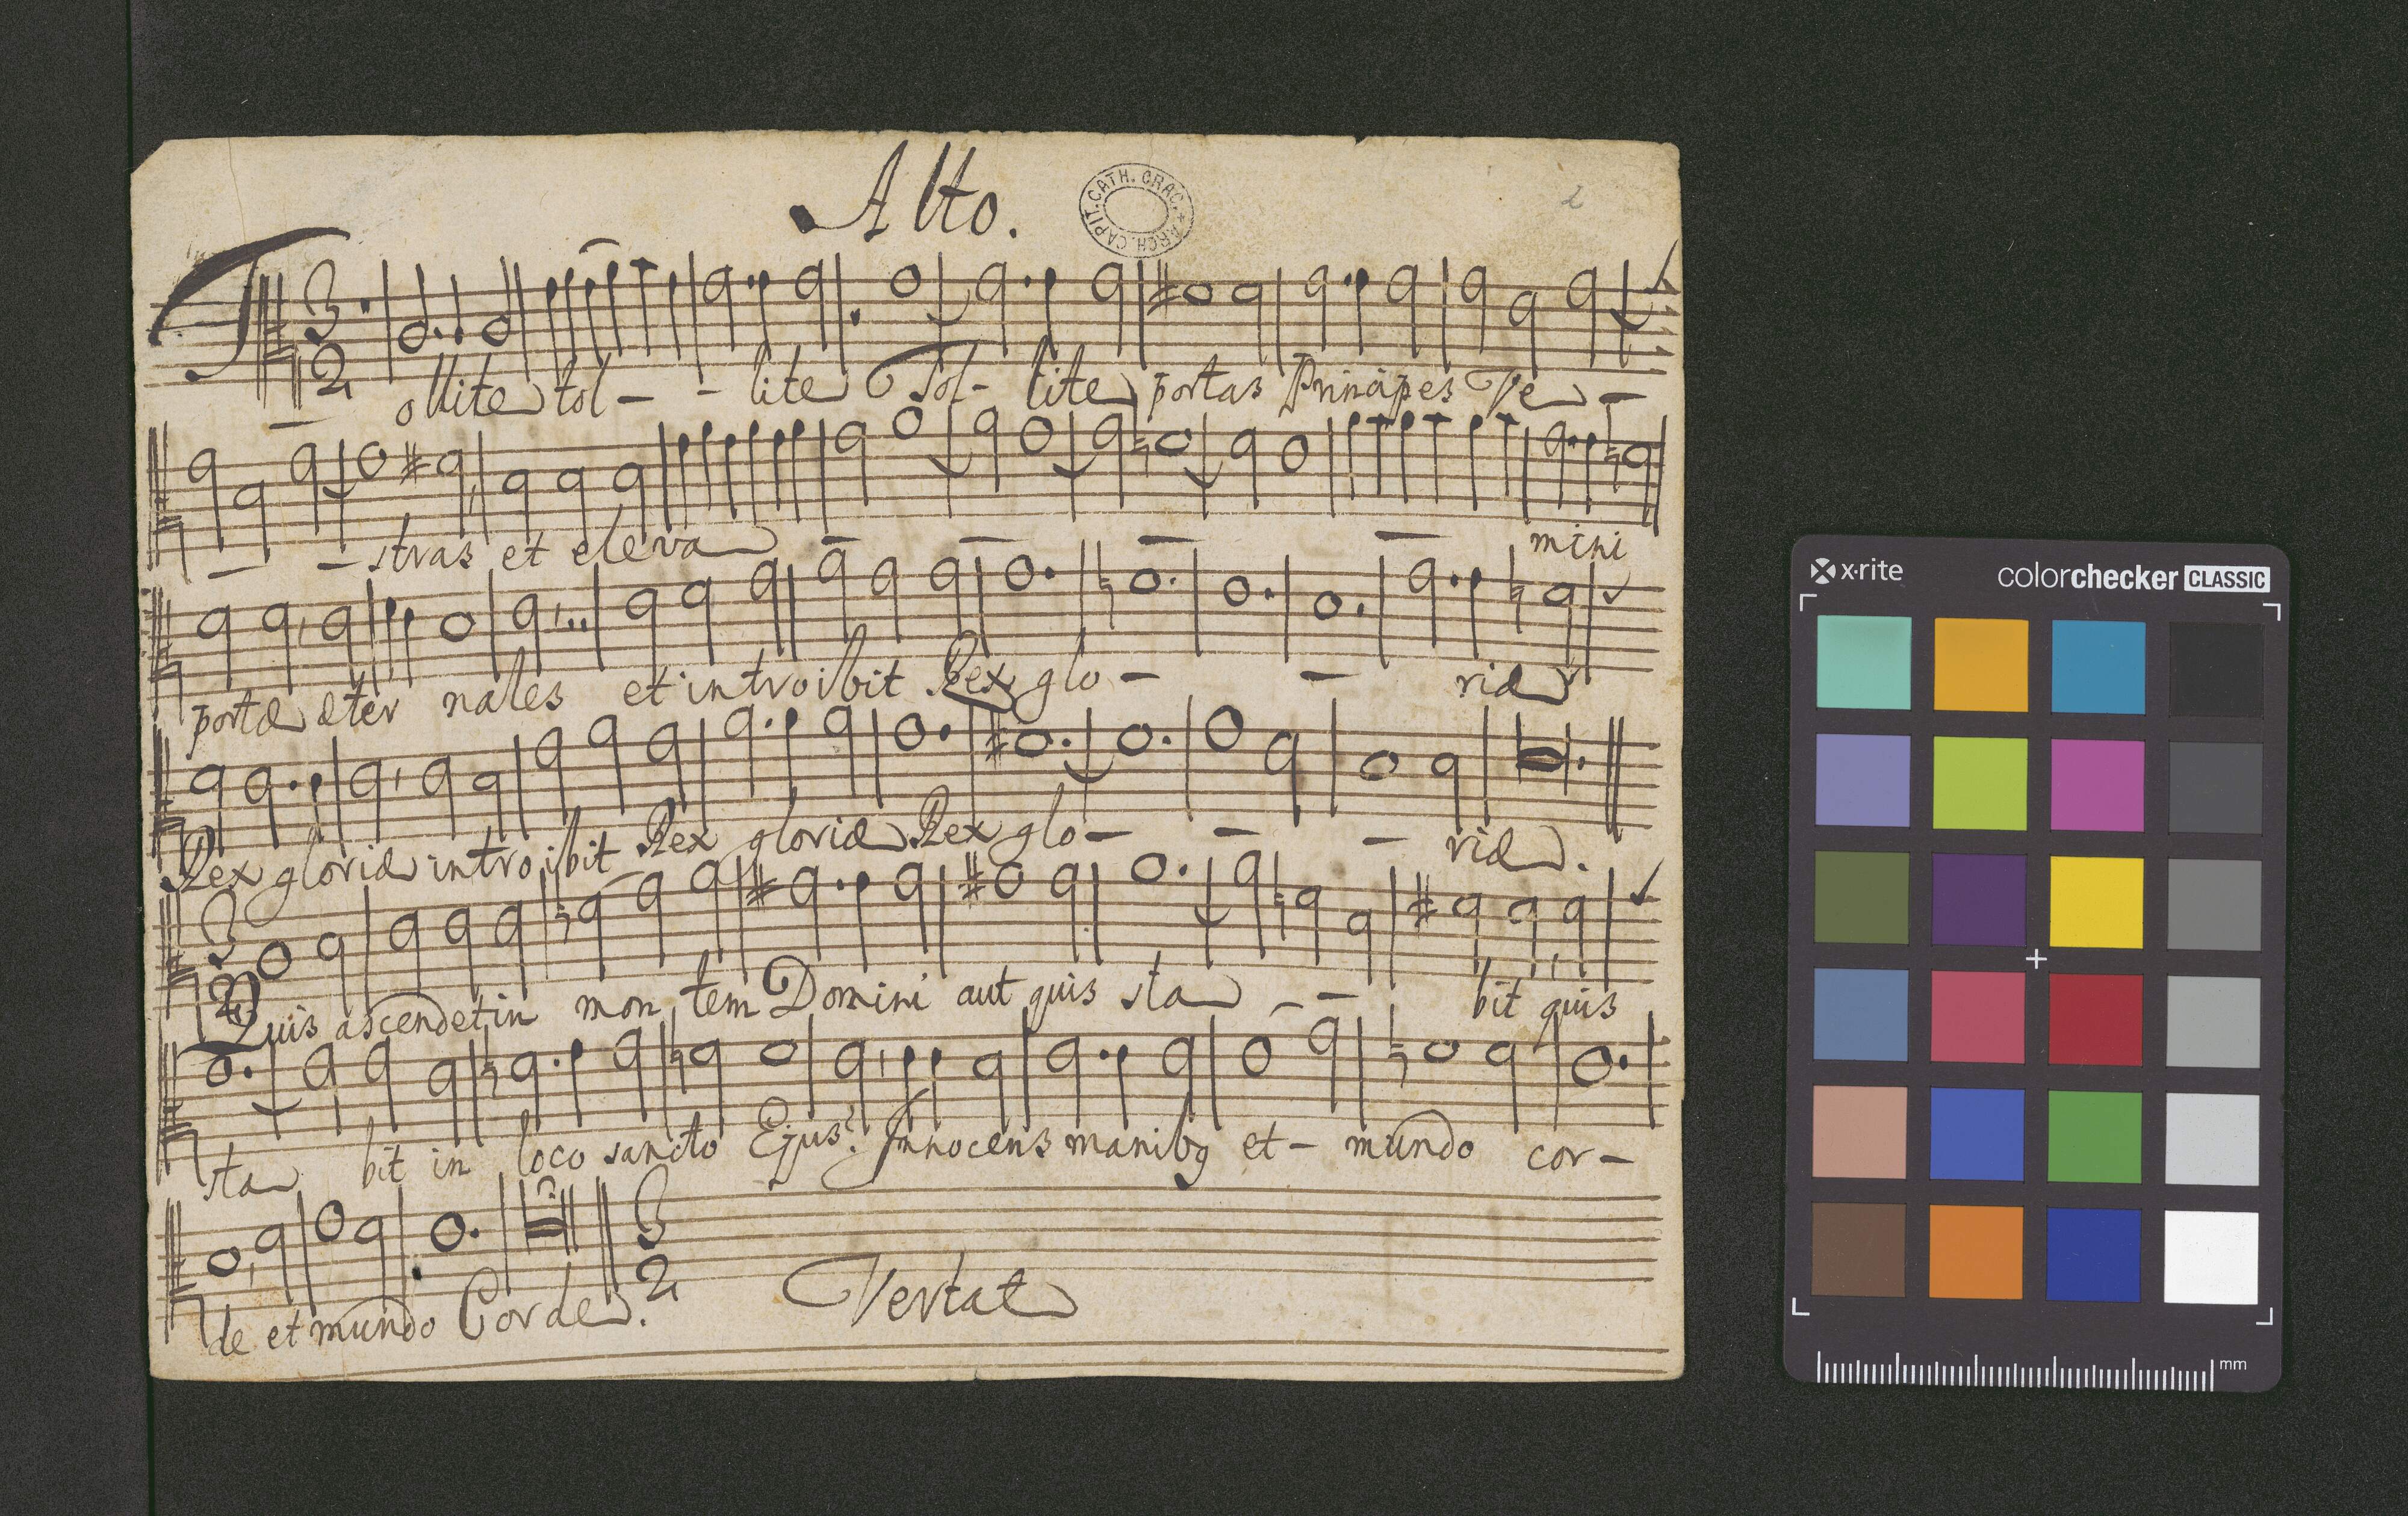 Alto.
ARCH. CAPIT. CATH. CRAC.
2
3
2
Tollite tol - - lite Tol - lite portas Principes Ve -
- - - stras et eleva - - - - mini
portæ æter nales et introibit Rex glo - - riæ
Rex gloriæ introibit Rex gloriæ Rex glo - - - riæ.
3
2
Quis ascendet in mon tem Domini aut quis sta - - bit quis
sta bit in loco sancto Ejus? Innocens manibq et - mundo cor -
3
2
de et mundo Corde.
Vertat
x·rite
colorchecker CLASSIC
mm